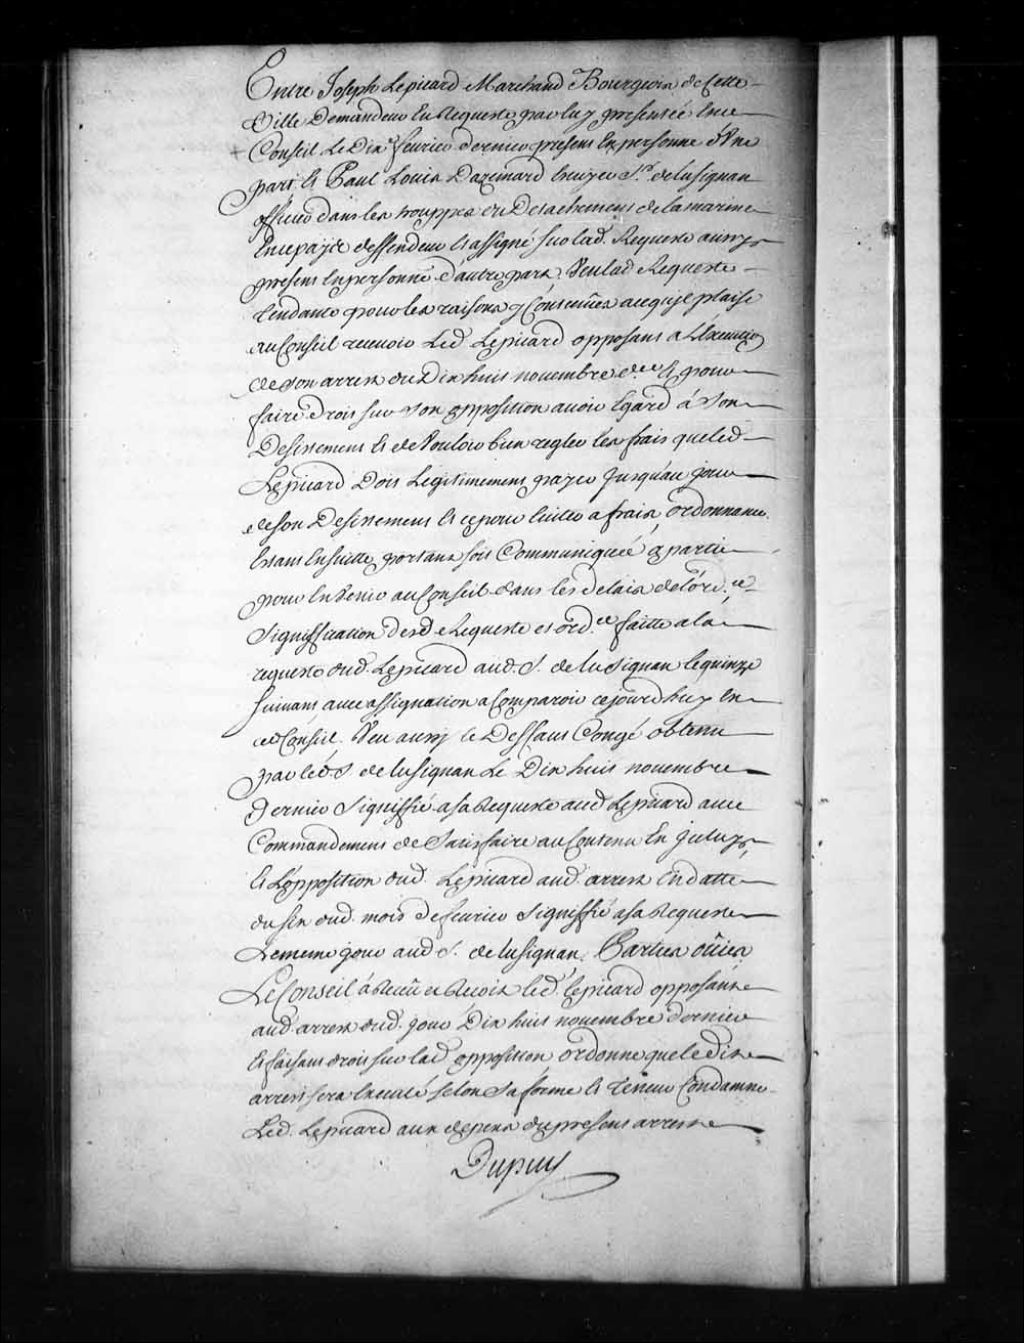 Entre Joseph Lepicard Marchand Bourgeois de Cette
Ville Demandeur En Requeste par luy presentée En ce
Conseil Le Dix feurier dernier present En personne d'Une
part Et Paul Louis Dazemard Escuyer Sr. de lusignan
officier dans les trouppes du Detachement de la marine
En ce païs deffendeur Et assigné sur lad. Requeste aussy
present En personne d'autre part. Veu lad Requeste
tendante pour les raisons y Contenües a ce qu'jl plaise
au Conseil receuoir Led. Lepicard opposant a L'Execution
de son arrest du Dix huit nouembre d.er Et pour
faire droit sur son opposition auoir Egard à son
Desistement Et de Vouloir bien regler les frais que led
Lepicard Doit Legitimement payer jusqu'au jour
de son Desistement Et ce pour Euiter a frais, ordonnance
Estant Ensuitte portant soit Communiquée a partie
pour En Venir au Conseil dans les delais de l'ord.ce
Signiffication desd. Requeste et ord.ce faitte a la
requeste dud. Lepicard aud. S. de lusignan le quinze
suiuant auec assignation a Comparoir cejourd'huy En
ce Conseil. Veu aussy le Deffaut Congé obtenu
par led S. de lusignan Le Dix huit nouembre
dernier Signiffié a sa Requeste aud Lepicard auec
Commandement de Satisfaire au Contenu En jceluy
Et L'opposition dud. Lepicard aud. arrest En datte
du six dud. mois de feurier signiffié a sa Requeste
Le meme jour aud S. de lusignan, Parties oüies
Le Conseil à Receu et Reçoit led. Lepicard opposant
aud. arrest dud. jour Dix huit nouembre dernier
Et faisant droit sur lad. opposition ordonne que ledit
arrest sera Executé selon sa forme Et teneur Condamne
Led. Lepicard aux depens du present arrest
Dupuy